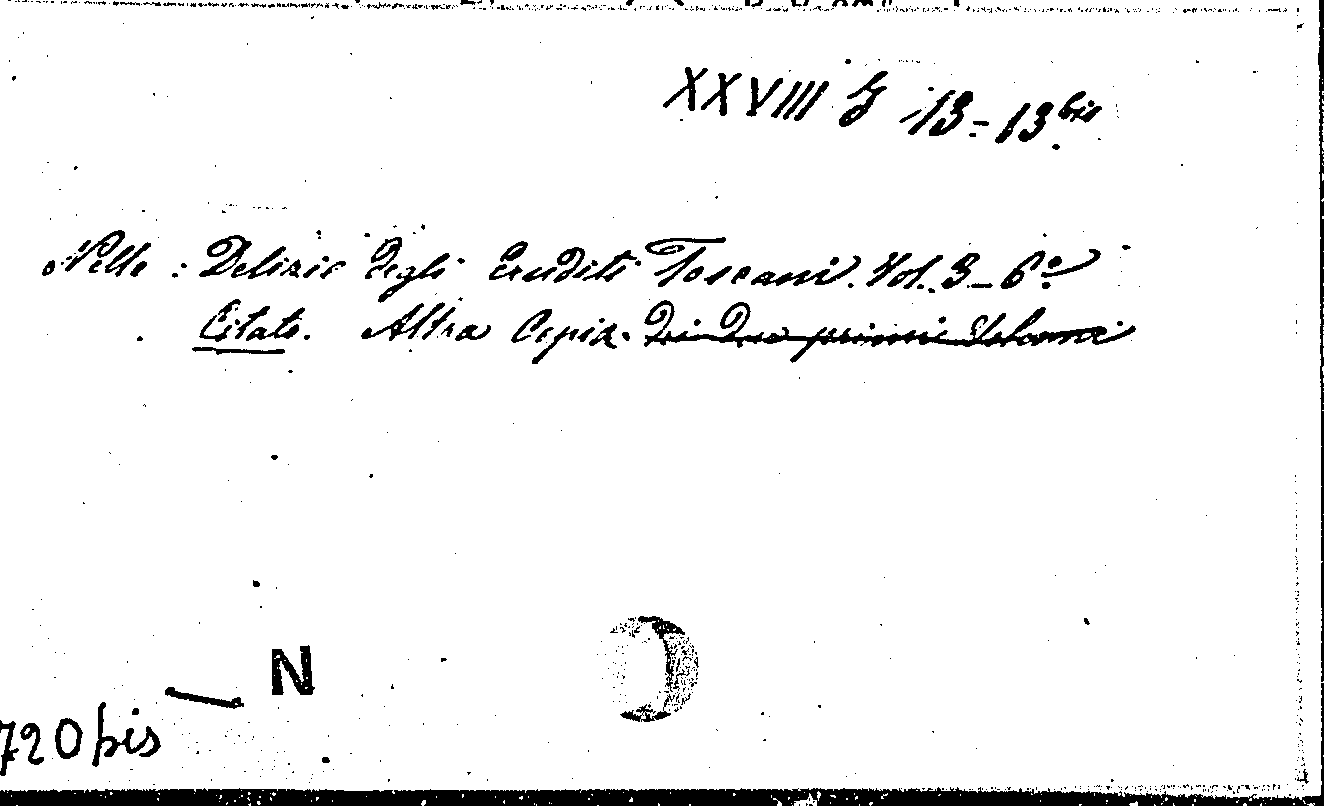 XXVIII G 13-13 bis
Nelle: Delizie degli Eruditi Toscani. Vol. 3-6°
Citato. Altra Copia. Dei Due primi Volumi
N
720 bis